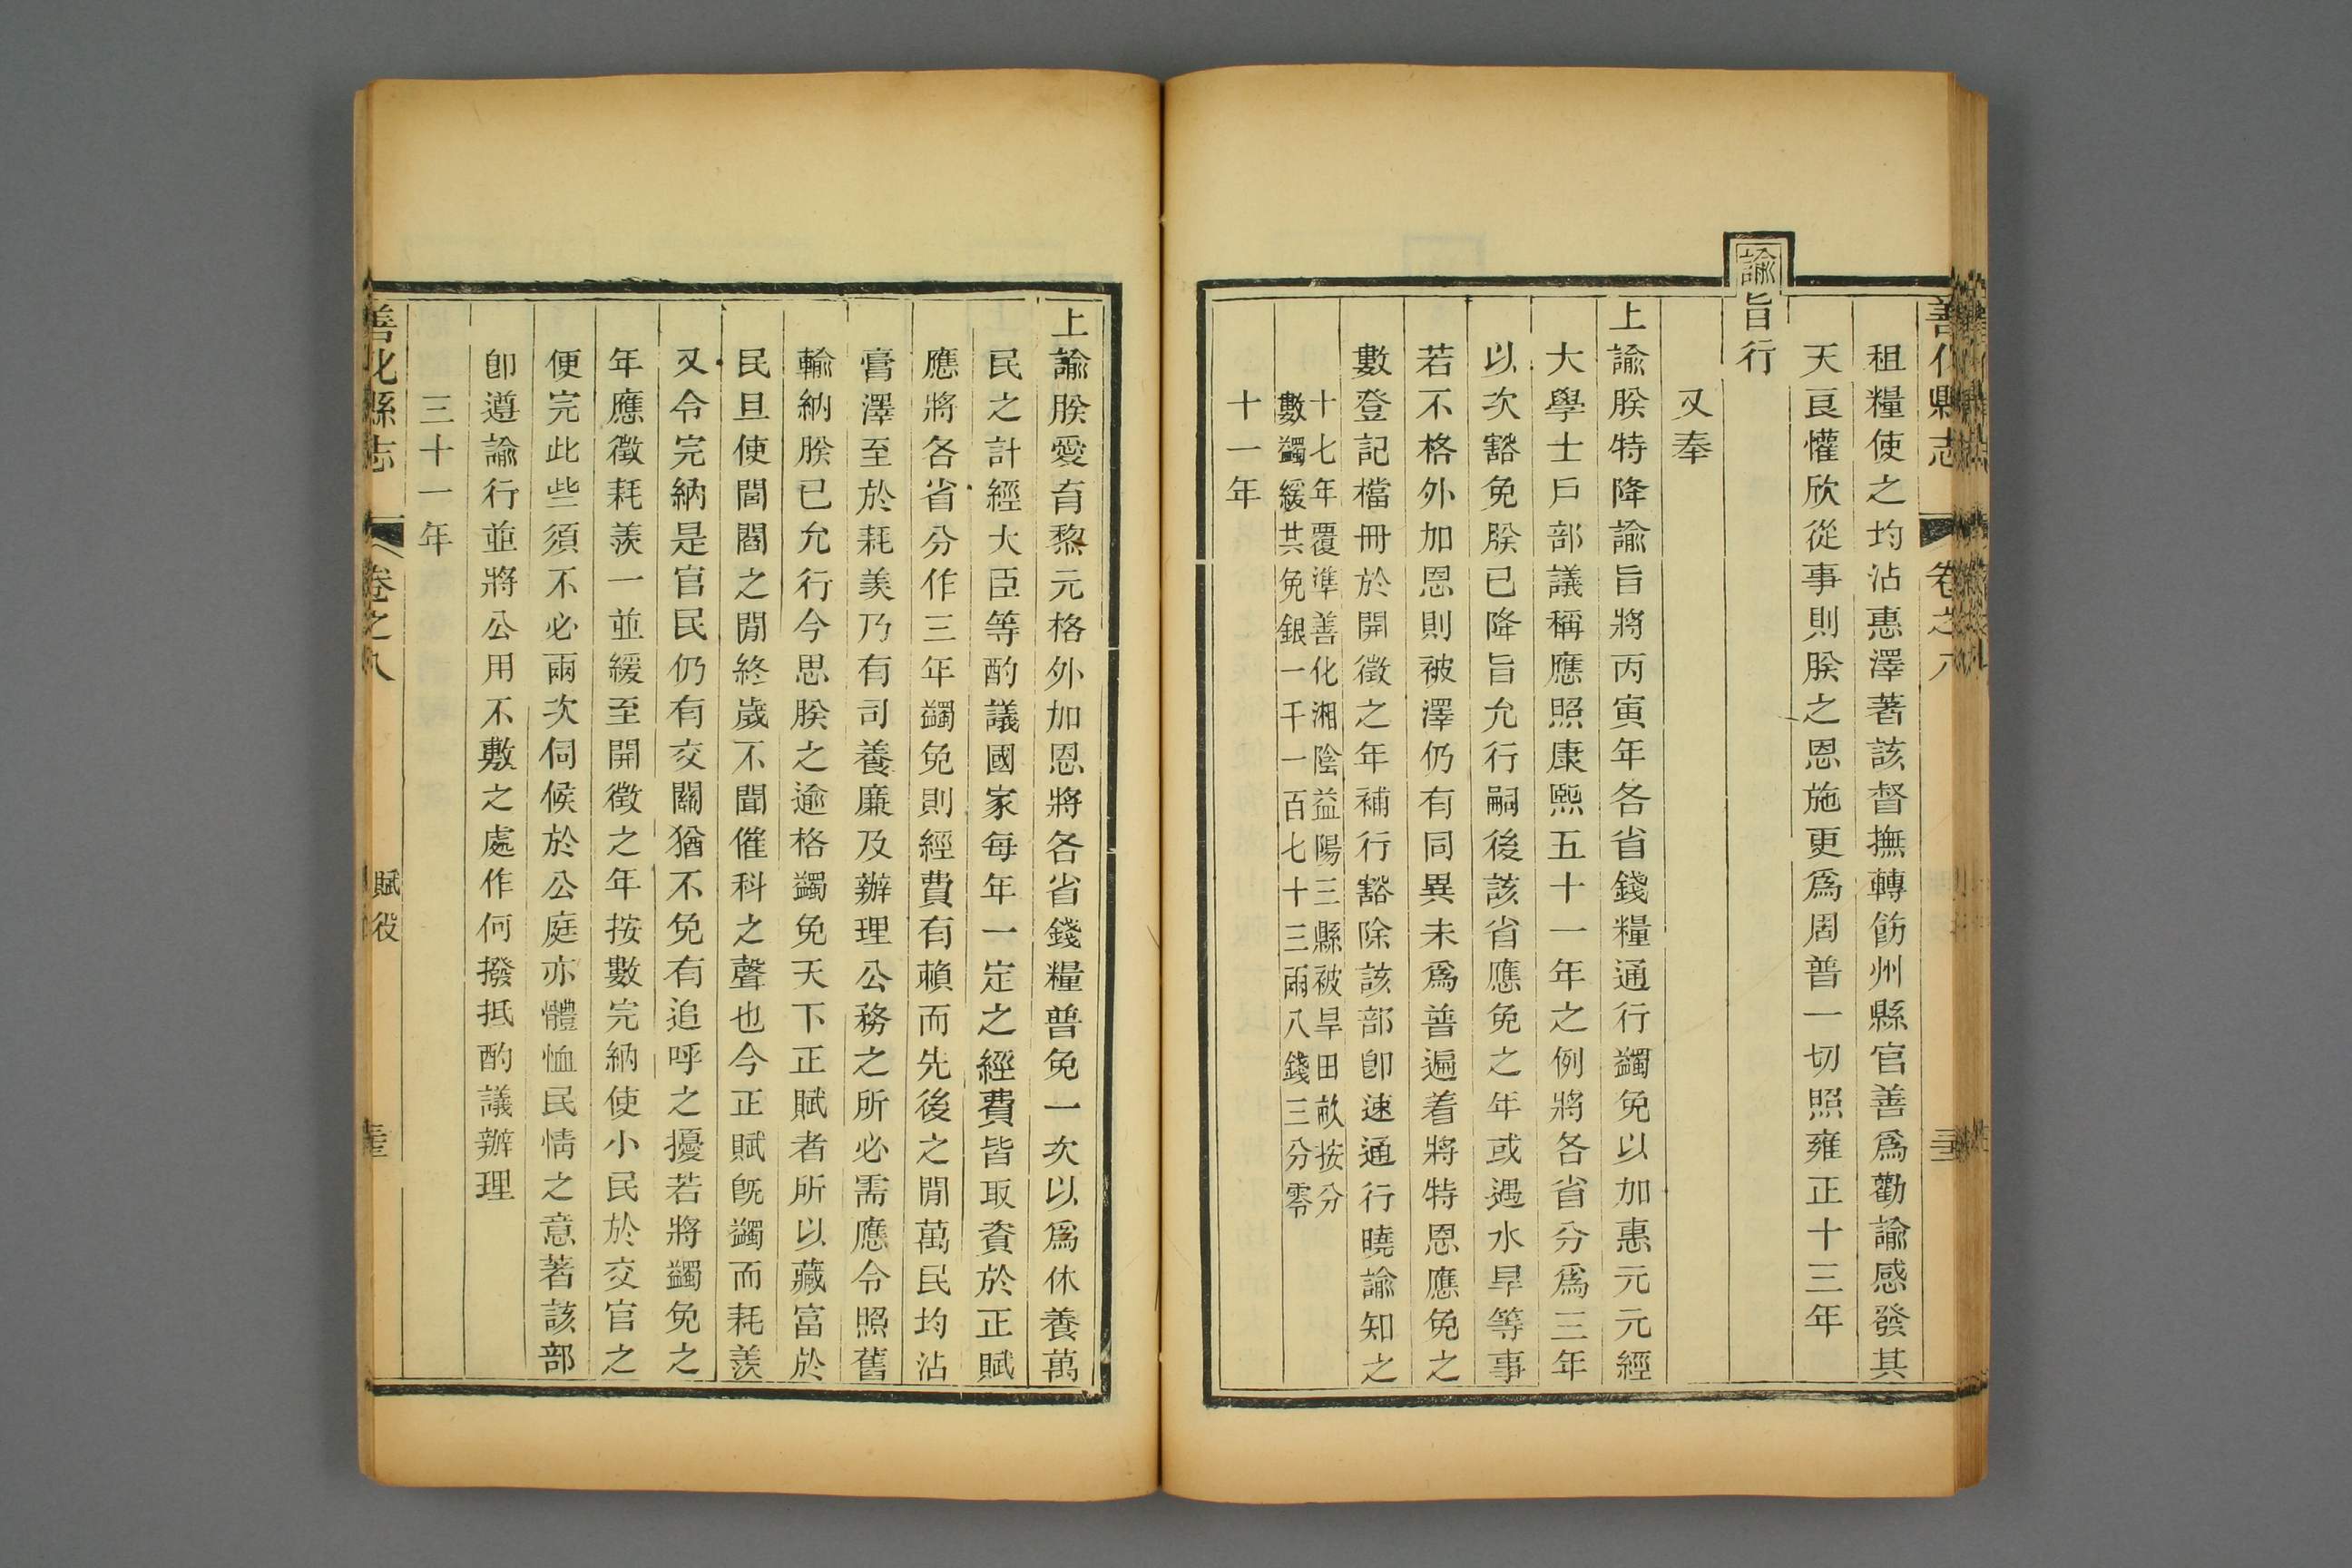 善化縣志 卷之八
租糧使之均沾惠澤著該督撫轉飭州縣官善為勸諭感發其
天良懽欣從事則朕之恩施更為周普一切照雍正十三年
諭旨行
又奉
上諭朕特降諭旨將丙寅年各省錢糧通行蠲免以加惠元元經
大學士戶部議稱應照康熙五十一年之例將各省分為三年
以次豁免朕已降旨允行嗣後該省應免之年或遇水旱等事
若不格外加恩則被澤仍有同異未為普遍着將特恩應免之
數登記檔冊於開徵之年補行豁除該部卽速通行曉諭知之
十七年覆準善化湘陰益陽三縣被旱田畝按分
數蠲緩共免銀一千一百七十三兩八錢三分零
十一年
上諭朕愛育黎元格外加恩將各省錢糧普免一次以為休養萬
民之計經大臣等酌議國家每年一定之經費皆取資於正賦
應將各省分作三年蠲免則經費有賴而先後之閒萬民均沾
膏澤至於耗羨乃有司養廉及辦理公務之所必需應令照舊
輸納朕已允行今思朕之逾格蠲免天下正賦者所以藏富於
民且使閭閻之閒終歲不聞催科之聲也今正賦旣蠲而耗羨
又令完納是官民仍有交關猶不免有追呼之擾若將蠲免之
年應徵耗羨一並緩至開徵之年按數完納使小民於交官之
便完此些須不必兩次伺候於公庭亦體恤民情之意著該部
卽遵諭行並將公用不敷之處作何撥抵酌議辦理
三十一年
善化縣志 卷之八 賦役